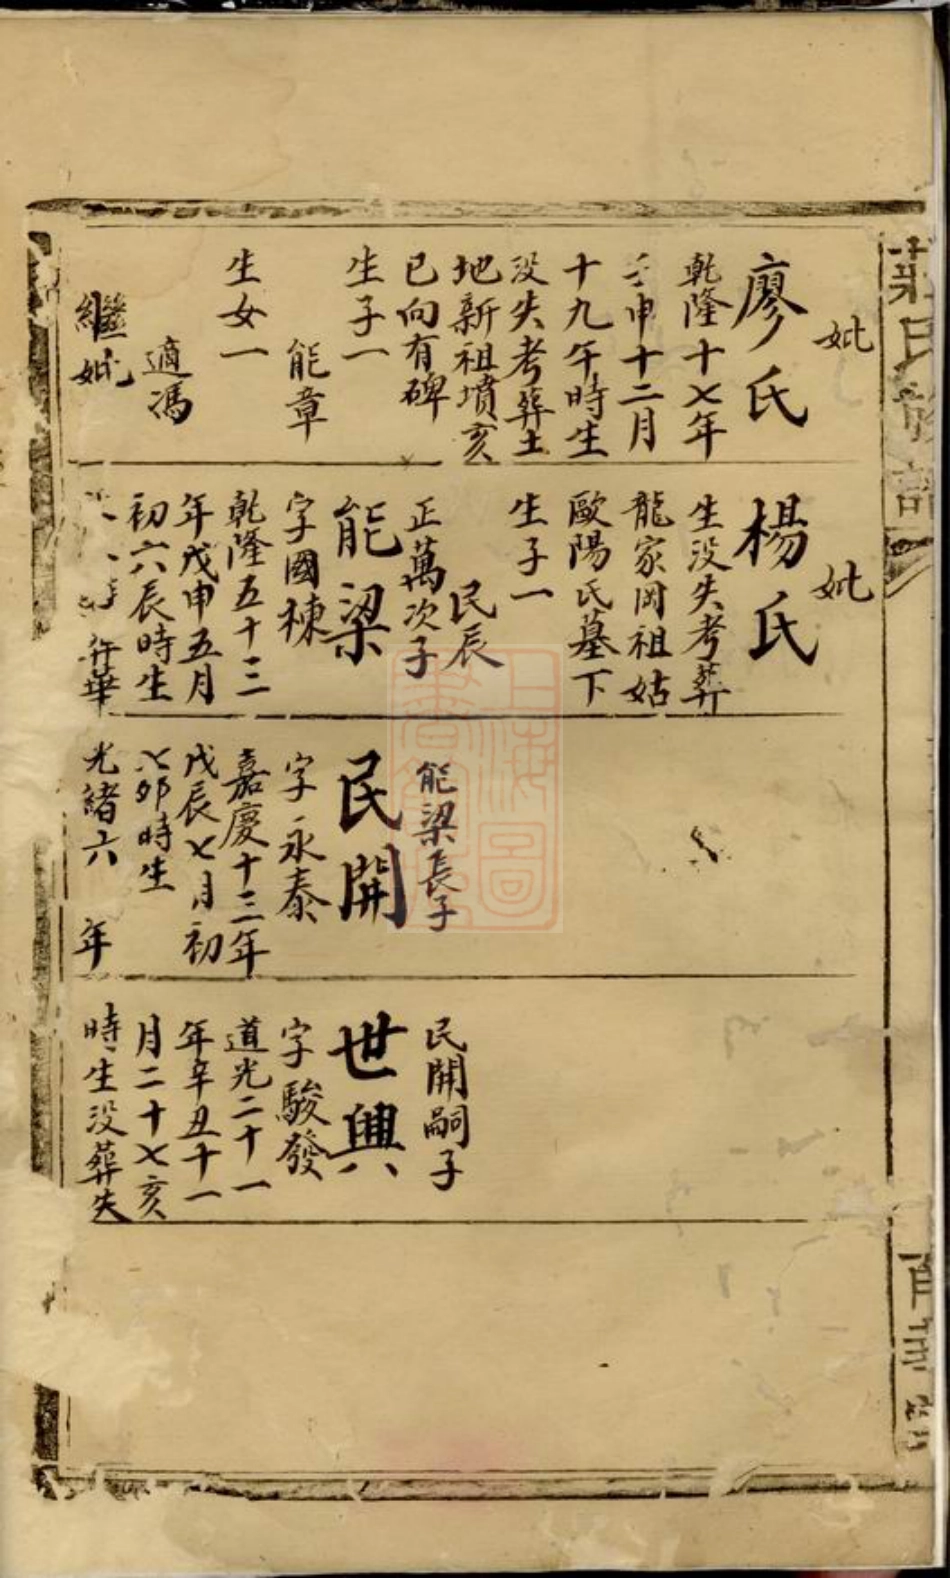 莊氏族譜
妣
廖氏
乾隆十七年
壬申十二月
十九午時生
没失考葬土
地新祖墳亥
巳向有碑
生子一
能章
生女一
適馮
繼妣
妣
楊氏
生没失考葬
龍家岡祖姑
歐陽氏墓下
生子一
民辰
正萬次子
能梁
字國棟
乾隆五十三
年戊申五月
初六辰時生
能梁長子
民開
字永泰
嘉慶十三年
戊辰七月初
八卯時生
光緒六 年
民開嗣子
世興
字駿發
道光二十一
年辛丑十一
月二十七亥
時生没葬失
上海圖書館藏